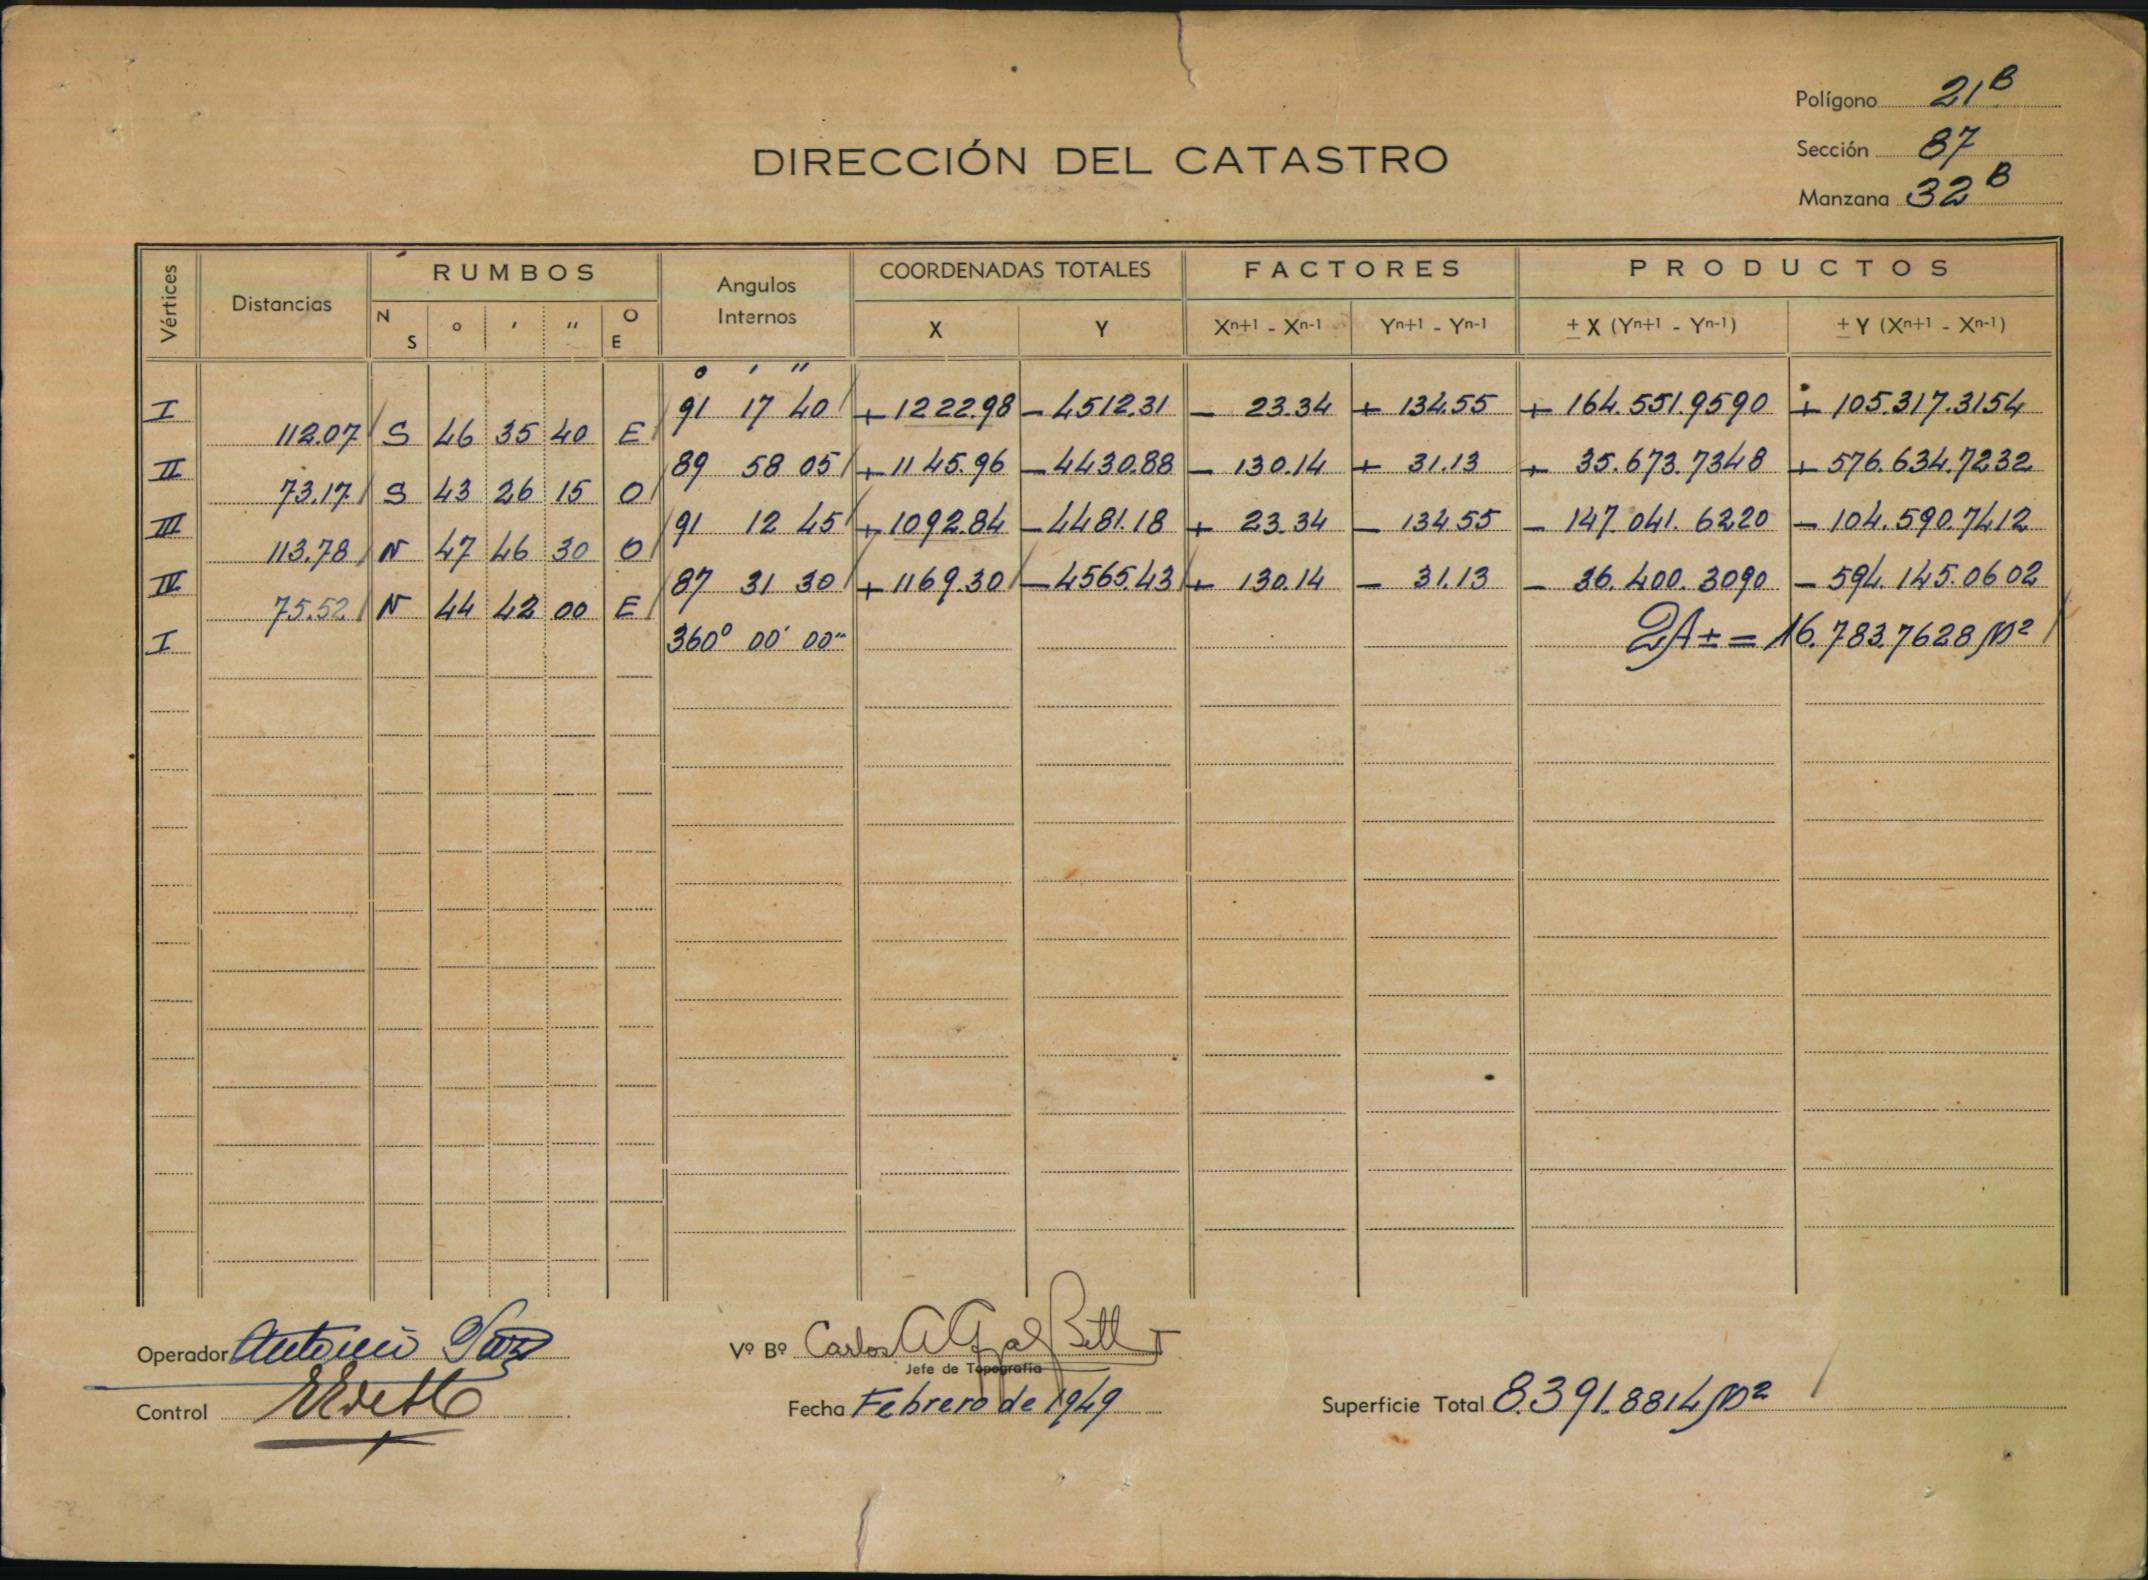 Polígono 21ᴮ
DIRECCIÓN DEL CATASTRO
Sección 87
Manzana 32ᴮ
Vértices Distancias RUMBOS Angulos Internos COORDENADAS TOTALES FACTORES PRODUCTOS
N S ° ' " O E X Y Xⁿ⁺¹ - Xⁿ⁻¹ Yⁿ⁺¹ - Yⁿ⁻¹ ± X (Yⁿ⁺¹ - Yⁿ⁻¹) ± Y (Xⁿ⁺¹ - Xⁿ⁻¹)
° ' "
I 91 17 40 + 1222.98 - 4512.31 - 23.34 + 134.55 + 164.551.9590 + 105.317.3154
112.07 S 46 35 40 E
II 89 58 05 + 1145.96 - 4430.88 - 130.14 + 31.13 + 35.673.7348 + 576.634.7232
73.17 S 43 26 15 O
III 91 12 45 + 1092.84 - 4481.18 + 23.34 - 134.55 - 147.041.6220 - 104.590.7412
113.78 N 47 46 30 O
IV 87 31 30 + 1169.30 - 4565.43 + 130.14 - 31.13 - 36.400.3090 - 594.145.0602
75.52 N 44 42 00 E
I 360° 00' 00" 2A ± = 16.783.7628 m²
Operador Antonio Vº Bº Carlos A
Jefe de Topografía
Control Fecha Febrero de 1949 Superficie Total 8.391.8814 m²